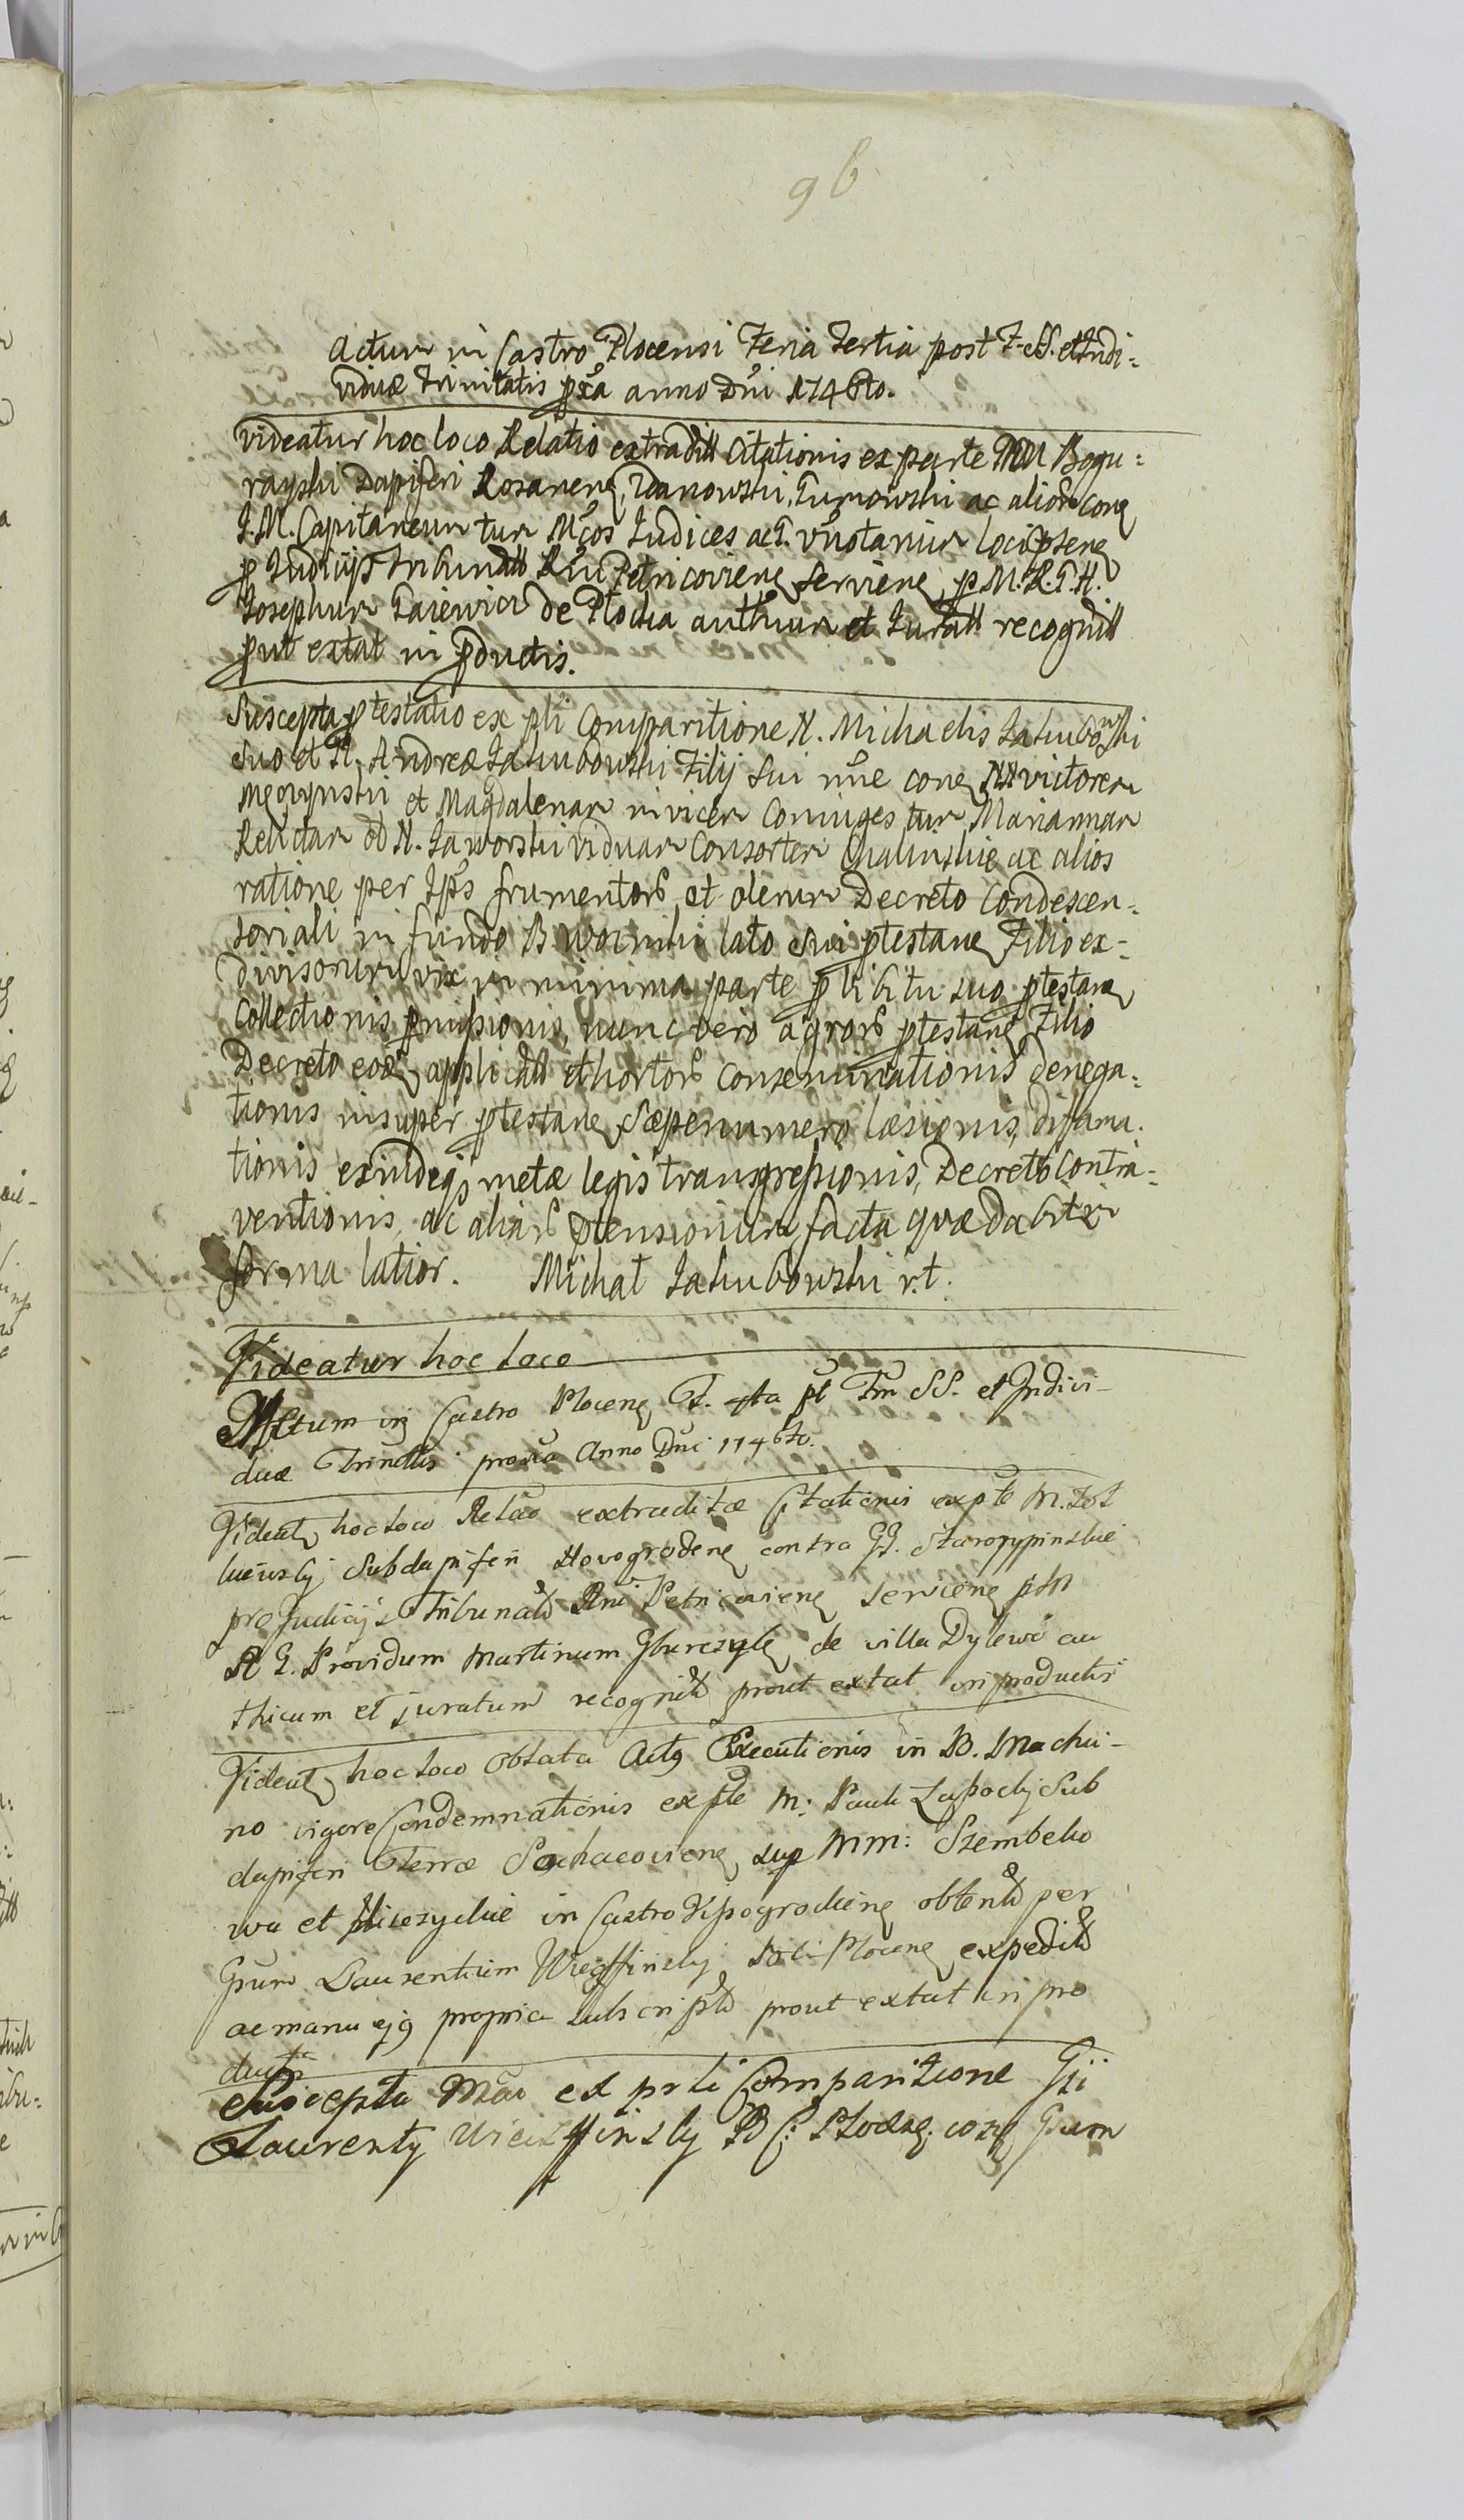 96
Actum in Castro Plocensi Feria Tertia post F. SS. et Indi=
viduæ Trinitatis pxa anno Dni 1746to.
Videatur hoc loco Relatio extradittt Citationis ex parte MM Bogu=
rayski Dapiferi Rosanens, ac alior cons
I. M. Capitaneum tum Mcos Iudices act. vnotarium loci psens
p Iudicijs Tribunattt Rni Petricoviens serviens, p M. R. G. H.
Iosephum Gaiewicz de Plocka authum et Iurattt recognittt
put extat in pductis.
Suscepta ptestatio ex pli Comparitione N. Michaelis Iakubowski
suo et N. Andreæ Iakubowski Filij sui nne cons NN Victorem
et Magdalenam invicem Coniuges tum Mariannam
Relictam N. Iaworski viduam Consortem ac alios
ratione per Ips frumentor et olerum Decreto Condescen=
soriali in fundo B. lato sui ptestans Filio ex=
divisorum vix in minima parte p libitu suo ptestans
Collectionis pmissionis, nunc vero agror ptestans Filio
Decreto eod applicattt et hortor Conseminationis denega=
tionis insuper ptestans sæpenumero læsionis, diffama=
tionis exindeq metæ legis transgressionis, Decreto Contra=
ventionis, ac aliar ptensionum facta quæ dabitur
forma latior. Michał Iakubowski r.t.
Videatur hoc loco
Actum in Castro Plocens F. 4ta pt Fm SS. et Indivi-
duæ Trinittis proxa Anno Dni 1746to.
Videat hoc loco Relao extraditæ Citationis expte M.
Subdapiferi Novogrodens contra GG.
pro Judicijs Tribunattt Rni Petricoviens serviens p M
R G. Providum Martinum de villa Dylewo au
thicum et juratum recognittt prout extat in productis
Videat hoc loco Oblata Actg Executionis in B. Machci-
no vigore Condemnationis expte M: Pauli Sub
dapiferi Terræ Sochacoviens sup MM: Szembeko
wa et in Castro Vissogrodiens obtentt per
Gsum Laurentium Plocens expeditt
ac manu ejg propria subscriptt prout extat in pro
ductis
Suscepta Man ex prli Comparitione Gii
Laurenty B C: Plocens. cons Gsum